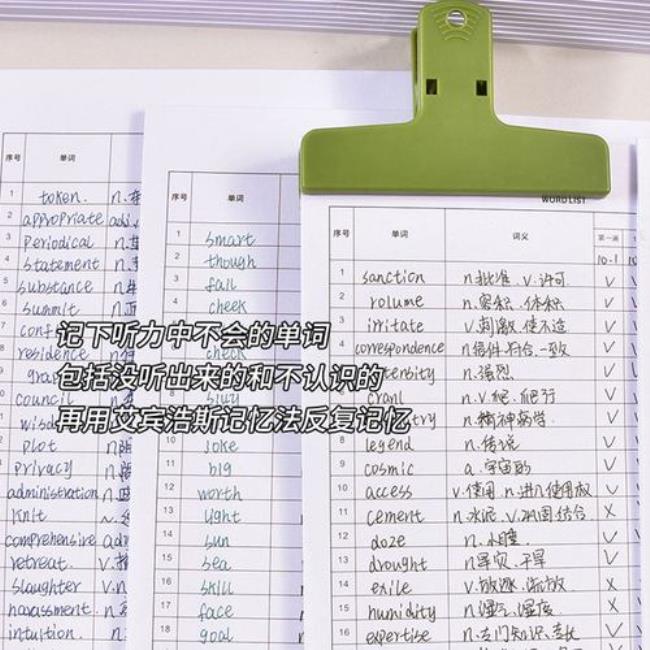 WORD LIST
序号 单词
1 token. n.
2 appropriate adj.
3 Periodical n.
4 statement n.
5 substance n.
6 summit n.
7
8 residence n.
9
council n.
plot n.
privacy n.
administration n.
knit v.
comprehensive adj
retreat. v.
slaughter v.n
harassment. n.
intuition. n.
序号 单词
1 smart
2 though
3 fall
4 cheek
check
10 joke
11 big
12 worth
13 light
14 sun
15 sea
16 skill
17 face
18 goal
序号 单词 词义 第一遍
10-1
1 sanction n.批准. v.许可. √
2 volume n.容积. 体积 √
3 irritate v.刺激. 使不适 √
4 correspondence n.信件.符合.一致 √
n.强烈 √
n.v.爬. 爬行 √
n.精神病学. √
8 legend n.传说 √
9 cosmic a.宇宙的 √
10 access v.使用. n.进入.使用权 √
11 cement n.水泥. v.巩固.结合 X
12 doze n.小睡. √
13 drought n.旱灾.干旱 √
14 exile v.放逐.流放 X
15 humidity n.湿气.湿度. X
16 expertise n.专门知识.专长 √
记下听力中不会的单词
包括没听出来的和不认识的
再用艾宾浩斯记忆法反复记忆